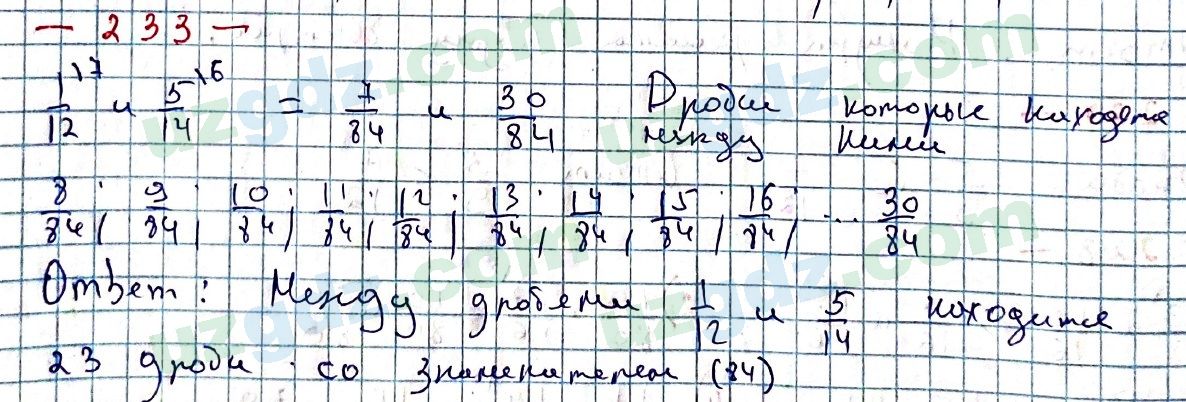 — 233 —
1/12 \7 и 5/14 \6 = 7/84 и 30/84 Дроби которые находятся
между ними
8/84; 9/84; 10/84; 11/84; 12/84; 13/84; 14/84; 15/84; 16/84; ... 30/84
Ответ: Между дробями 1/12 и 5/14 находится
23 дроби со знаменателем (84)
uzgdz.com uzgdz.com
uzgdz.com uzgdz.com